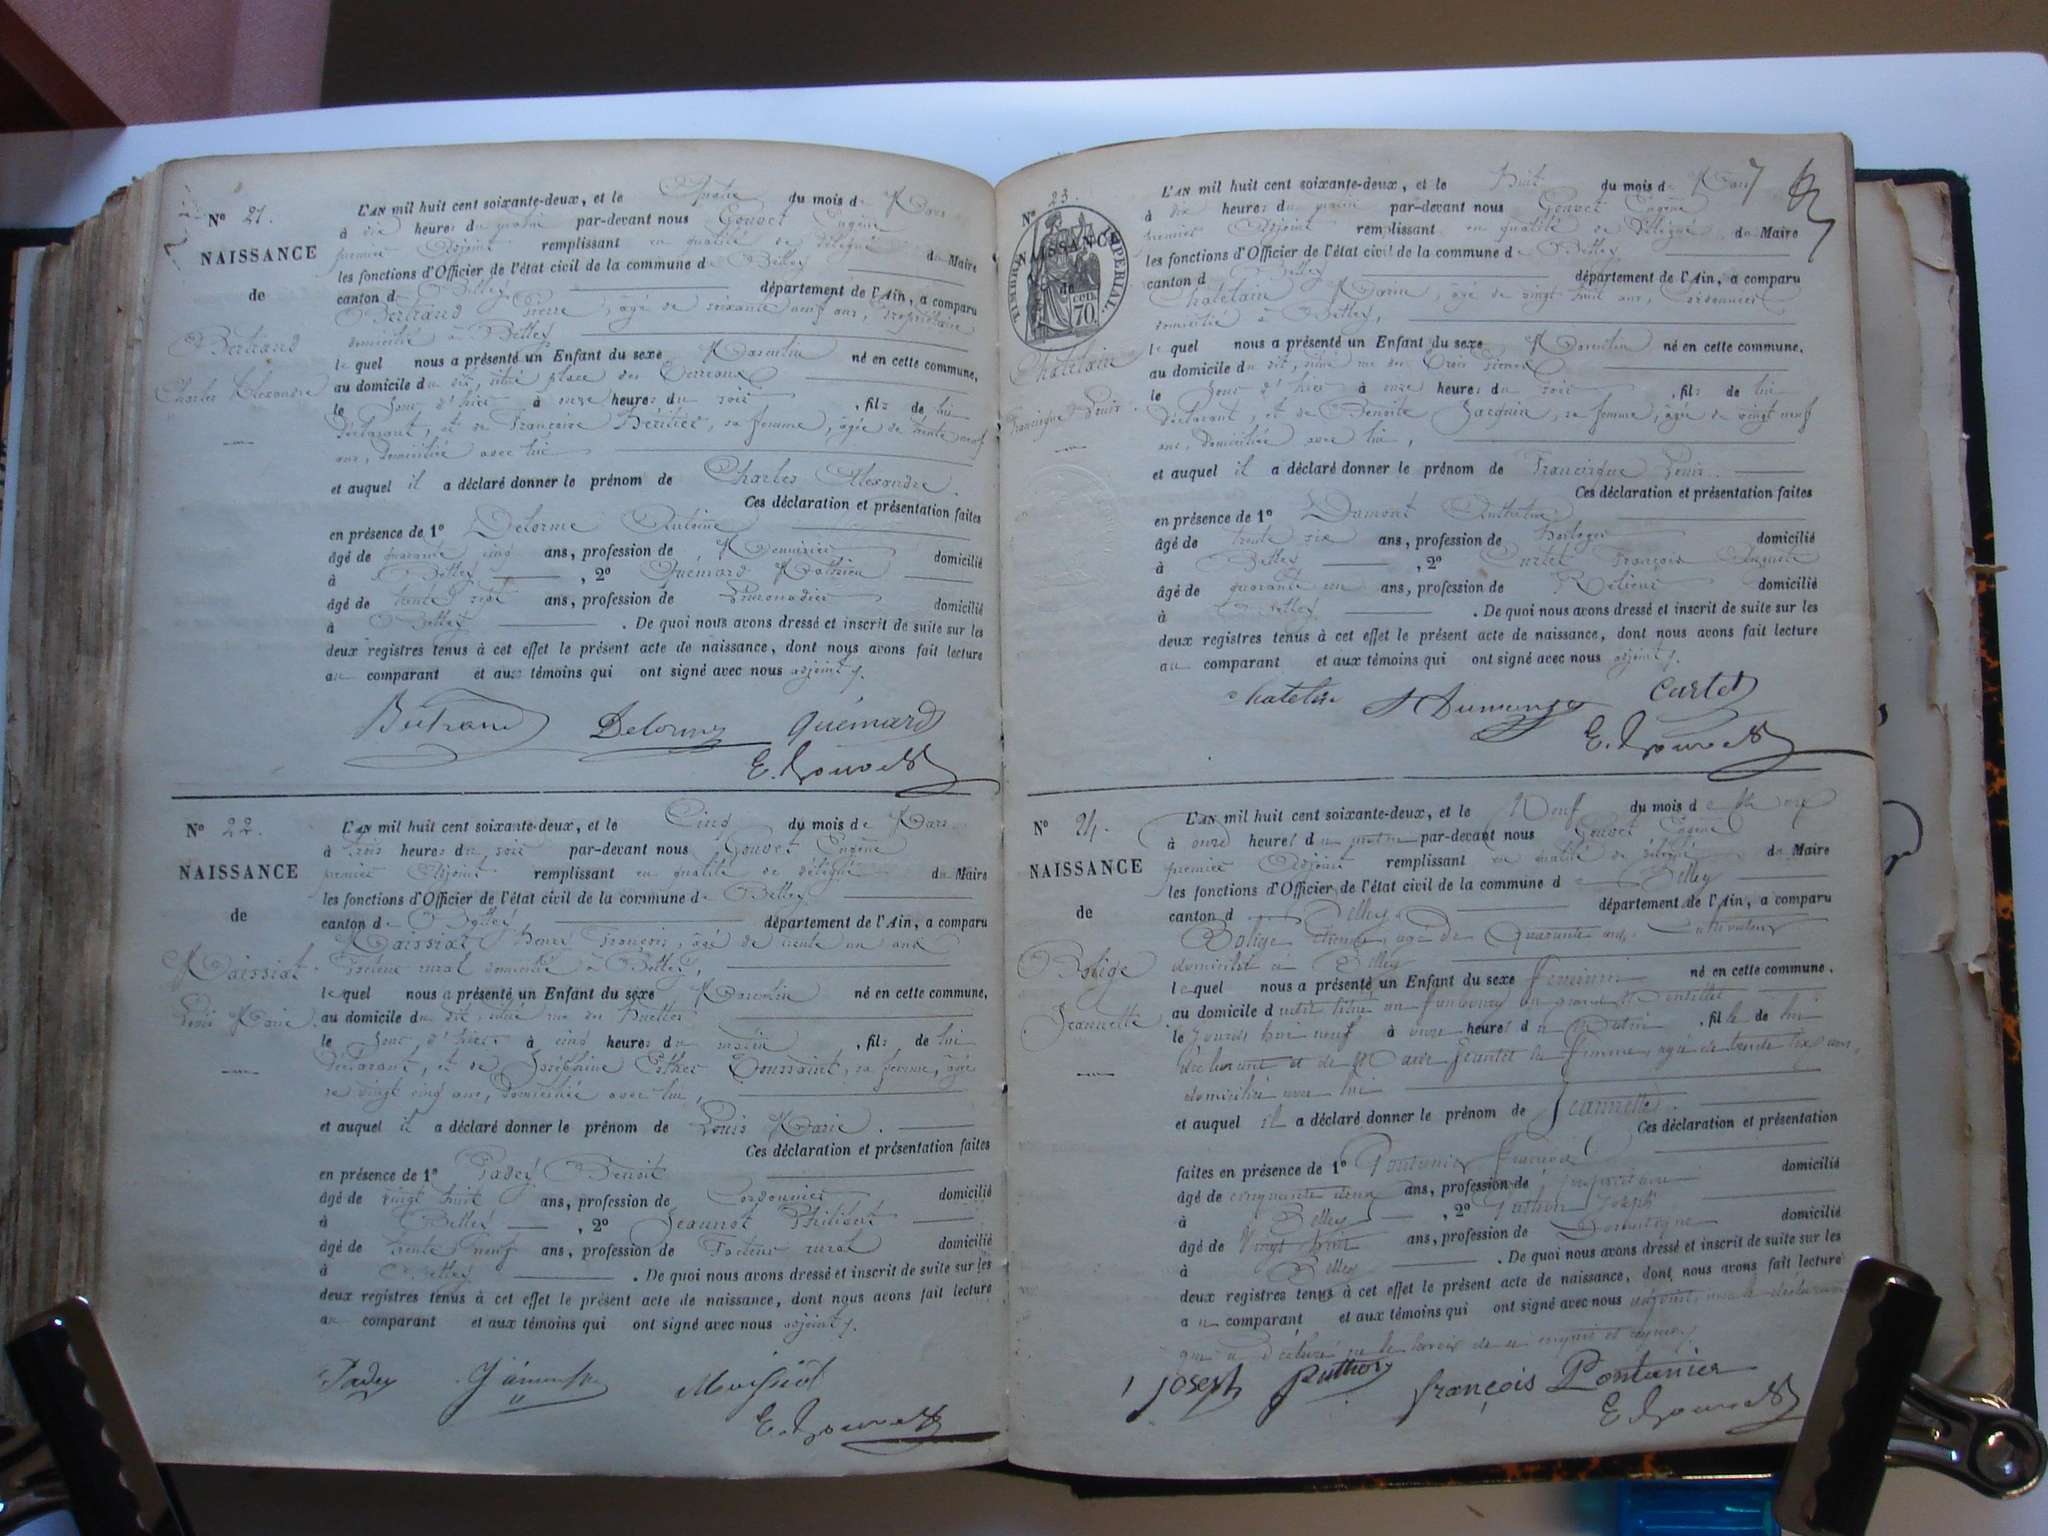 N° 21.
NAISSANCE
de
Bertrand
Charles Alexandre
L'AN mil huit cent soixante-deux, et le quatre du mois de Mars
à dix heures du matin par-devant nous Gouvet Eugène
premier Adjoint remplissant en qualité de délégué du Maire
les fonctions d'Officier de l'état civil de la commune de Belley
canton de Belley département de l'Ain, a comparu
Bertrand Pierre, âgé de soixante neuf ans, propriétaire
domicilié à Belley
lequel nous a présenté un Enfant du sexe Masculin né en cette commune,
au domicile du dit, situé place des Terreaux
le jour d'hier à onze heures du soir, fils de lui
déclarant, et de Françoise Héritier, sa femme, âgée de trente neuf
ans, domiciliée avec lui
et auquel il a déclaré donner le prénom de Charles Alexandre.
Ces déclaration et présentation faites
en présence de 1° Delorme Antoine
âgé de quarante cinq ans, profession de Menuisier domicilié
à Belley, 2° Quémard Mathieu
âgé de trente sept ans, profession de Limonadier domicilié
à Belley. De quoi nous avons dressé et inscrit de suite sur les
deux registres tenus à cet effet le présent acte de naissance, dont nous avons fait lecture
au comparant et aux témoins qui ont signé avec nous adjoint
Bertrand Delorme Quémard
E. Gouvet
N° 22.
NAISSANCE
de
Maissiat
Louis Marie.
L'AN mil huit cent soixante-deux, et le Cinq du mois de Mars
à trois heures du soir par-devant nous Gouvet Eugène
premier Adjoint remplissant en qualité de délégué du Maire
les fonctions d'Officier de l'état civil de la commune de Belley
canton de Belley département de l'Ain, a comparu
Maissiat Henri François, âgé de trente un ans
Facteur rural domicilié à Belley,
lequel nous a présenté un Enfant du sexe Masculin né en cette commune,
au domicile du dit, situé rue des
le jour d'hier à cinq heures du matin, fils de lui
déclarant, et de Joséphine Esther Toussaint, sa femme, âgée
de vingt cinq ans, domiciliée avec lui,
et auquel il a déclaré donner le prénom de Louis Marie.
Ces déclaration et présentation faites
en présence de 1° Padey Benoît
âgé de vingt huit ans, profession de Cordonnier domicilié
à Belley, 2° Jeannot Philibert
âgé de trente neuf ans, profession de Facteur rural domicilié
à Belley. De quoi nous avons dressé et inscrit de suite sur les
deux registres tenus à cet effet le présent acte de naissance, dont nous avons fait lecture
au comparant et aux témoins qui ont signé avec nous adjoint
Padey Maissiat
E. Gouvet
N° 23.
NAISSANCE
de
TIMBRE IMPERIAL.
cen. 70.
Chatelain
Francisque Louis.
L'AN mil huit cent soixante-deux, et le huit du mois de Mars
à dix heures du matin par-devant nous Gouvet Eugène
premier Adjoint remplissant en qualité de délégué du Maire
les fonctions d'Officier de l'état civil de la commune de Belley
canton de Belley département de l'Ain, a comparu
Chatelain Marin, âgé de vingt huit ans, Cordonnier
domicilié à Belley,
lequel nous a présenté un Enfant du sexe Masculin né en cette commune,
au domicile du dit, situé rue des Trois
le jour d'hier à onze heures du soir, fils de lui
déclarant, et de Benoîte Jacquin, sa femme, âgée de vingt neuf
ans, domiciliée avec lui,
et auquel il a déclaré donner le prénom de Francisque Louis.
Ces déclaration et présentation faites
en présence de 1° Dumont
âgé de trente six ans, profession de horloger domicilié
à Belley, 2° Curtet François Auguste
âgé de quarante un ans, profession de Relieur domicilié
à Belley. De quoi nous avons dressé et inscrit de suite sur les
deux registres tenus à cet effet le présent acte de naissance, dont nous avons fait lecture
au comparant et aux témoins qui ont signé avec nous adjoint
Chatelain Dumont Curtet
E. Gouvet
N° 24.
NAISSANCE
de
Bolige
Jeannette
L'AN mil huit cent soixante-deux, et le Neuf du mois de Mars
à onze heures du matin par-devant nous Gouvet Eugène
premier Adjoint remplissant en qualité de délégué du Maire
les fonctions d'Officier de l'état civil de la commune de Belley
canton de Belley département de l'Ain, a comparu
Bolige Etienne, agé de Quarante ans, Cultivateur
domicilié à Belley
lequel nous a présenté un Enfant du sexe feminin né en cette commune.
au domicile du dit situé au faubourg
le jourd'hui neuf à onze heures du Matin, fille de lui
déclarant et de Marie Jeantet sa femme, agée de trente six ans,
domiciliée avec lui
et auquel il a déclaré donner le prénom de Jeannette.
Ces déclaration et présentation
faites en présence de 1° Pontanier François
âgé de cinquante deux ans, profession de propriétaire domicilié
à Belley, 2° Puthon Joseph
âgé de Vingt huit ans, profession de Domestique domicilié
à Belley. De quoi nous avons dressé et inscrit de suite sur les
deux registres tenus à cet effet le présent acte de naissance, dont nous avons fait lecture
au comparant et aux témoins qui ont signé avec nous adjoint, non le déclarant
qui a déclaré ne le savoir de ce enquis et requis.
Joseph Puthon françois Pontanier
E. Gouvet